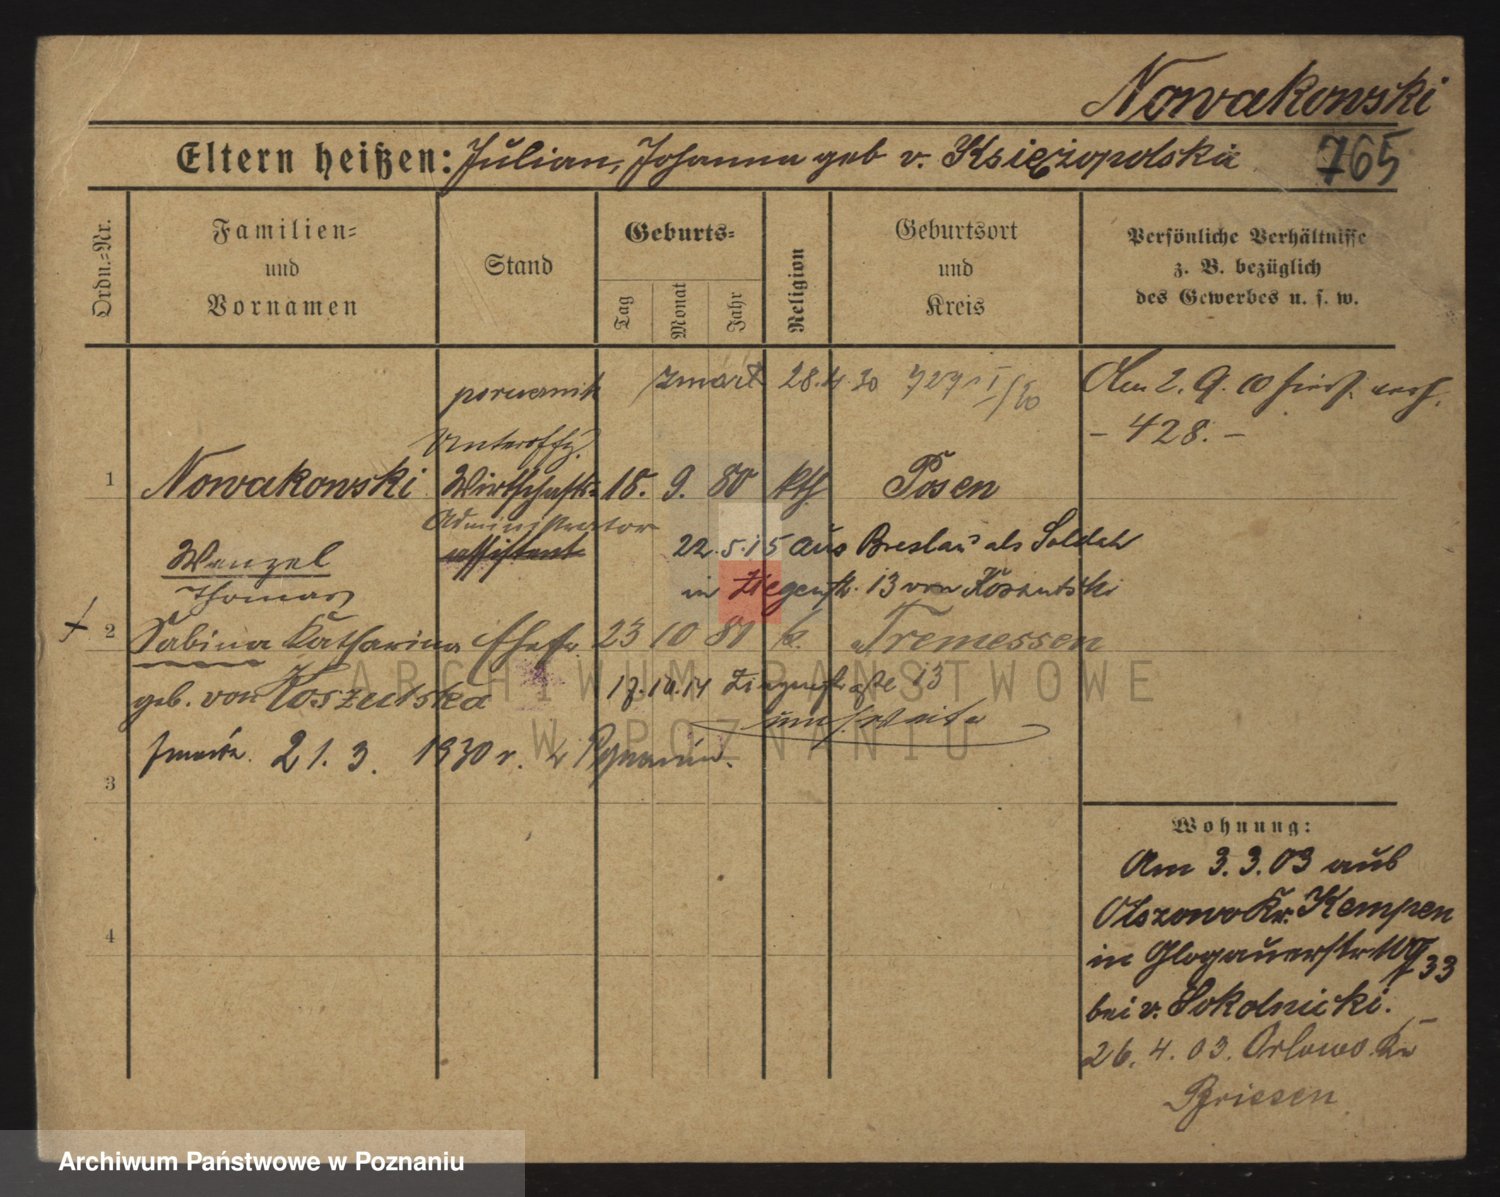 Nowakowski
Eltern heißen: Julian, Johanna geb v. Księżopolska 765
Ordn.=Nr.
Familien=
und
Vornamen
Stand
Geburts=
Tag
Monat
Jahr
Religion
Geburtsort
und
Kreis
Persönliche Verhältnisse
z. B. bezüglich
des Gewerbes u. s. w.
porucznik zmarł 28.4.30
Am 2. 9. 00 hier verh.
- 428. -
Unteroffz.
1 Nowakowski Wirtschafts= 18. 9. 80 kth Posen
Administrator
assistent
22.5.15 aus Breslau als Soldat
Wenzel
Thomas
in Ziegenstr. 13 von Koszutski
2 Sabina Katharina Ehefr. 23 10 81 k. Tremessen
geb. von Koszutska
17.10.14 Ziegenstraße 13
zmarła 21. 3. 1930 r. w Poznaniu.
3
4
Wohnung:
Am 3. 3. 03 aus
Olszowo Kr. Kempen
in Glogauerstr 107 33
bei v. Sokolnicki.
26. 4. 03. Orlowo Kr
Briesen
ARCHIWUM PAŃSTWOWE
W POZNANIU
Archiwum Państwowe w Poznaniu